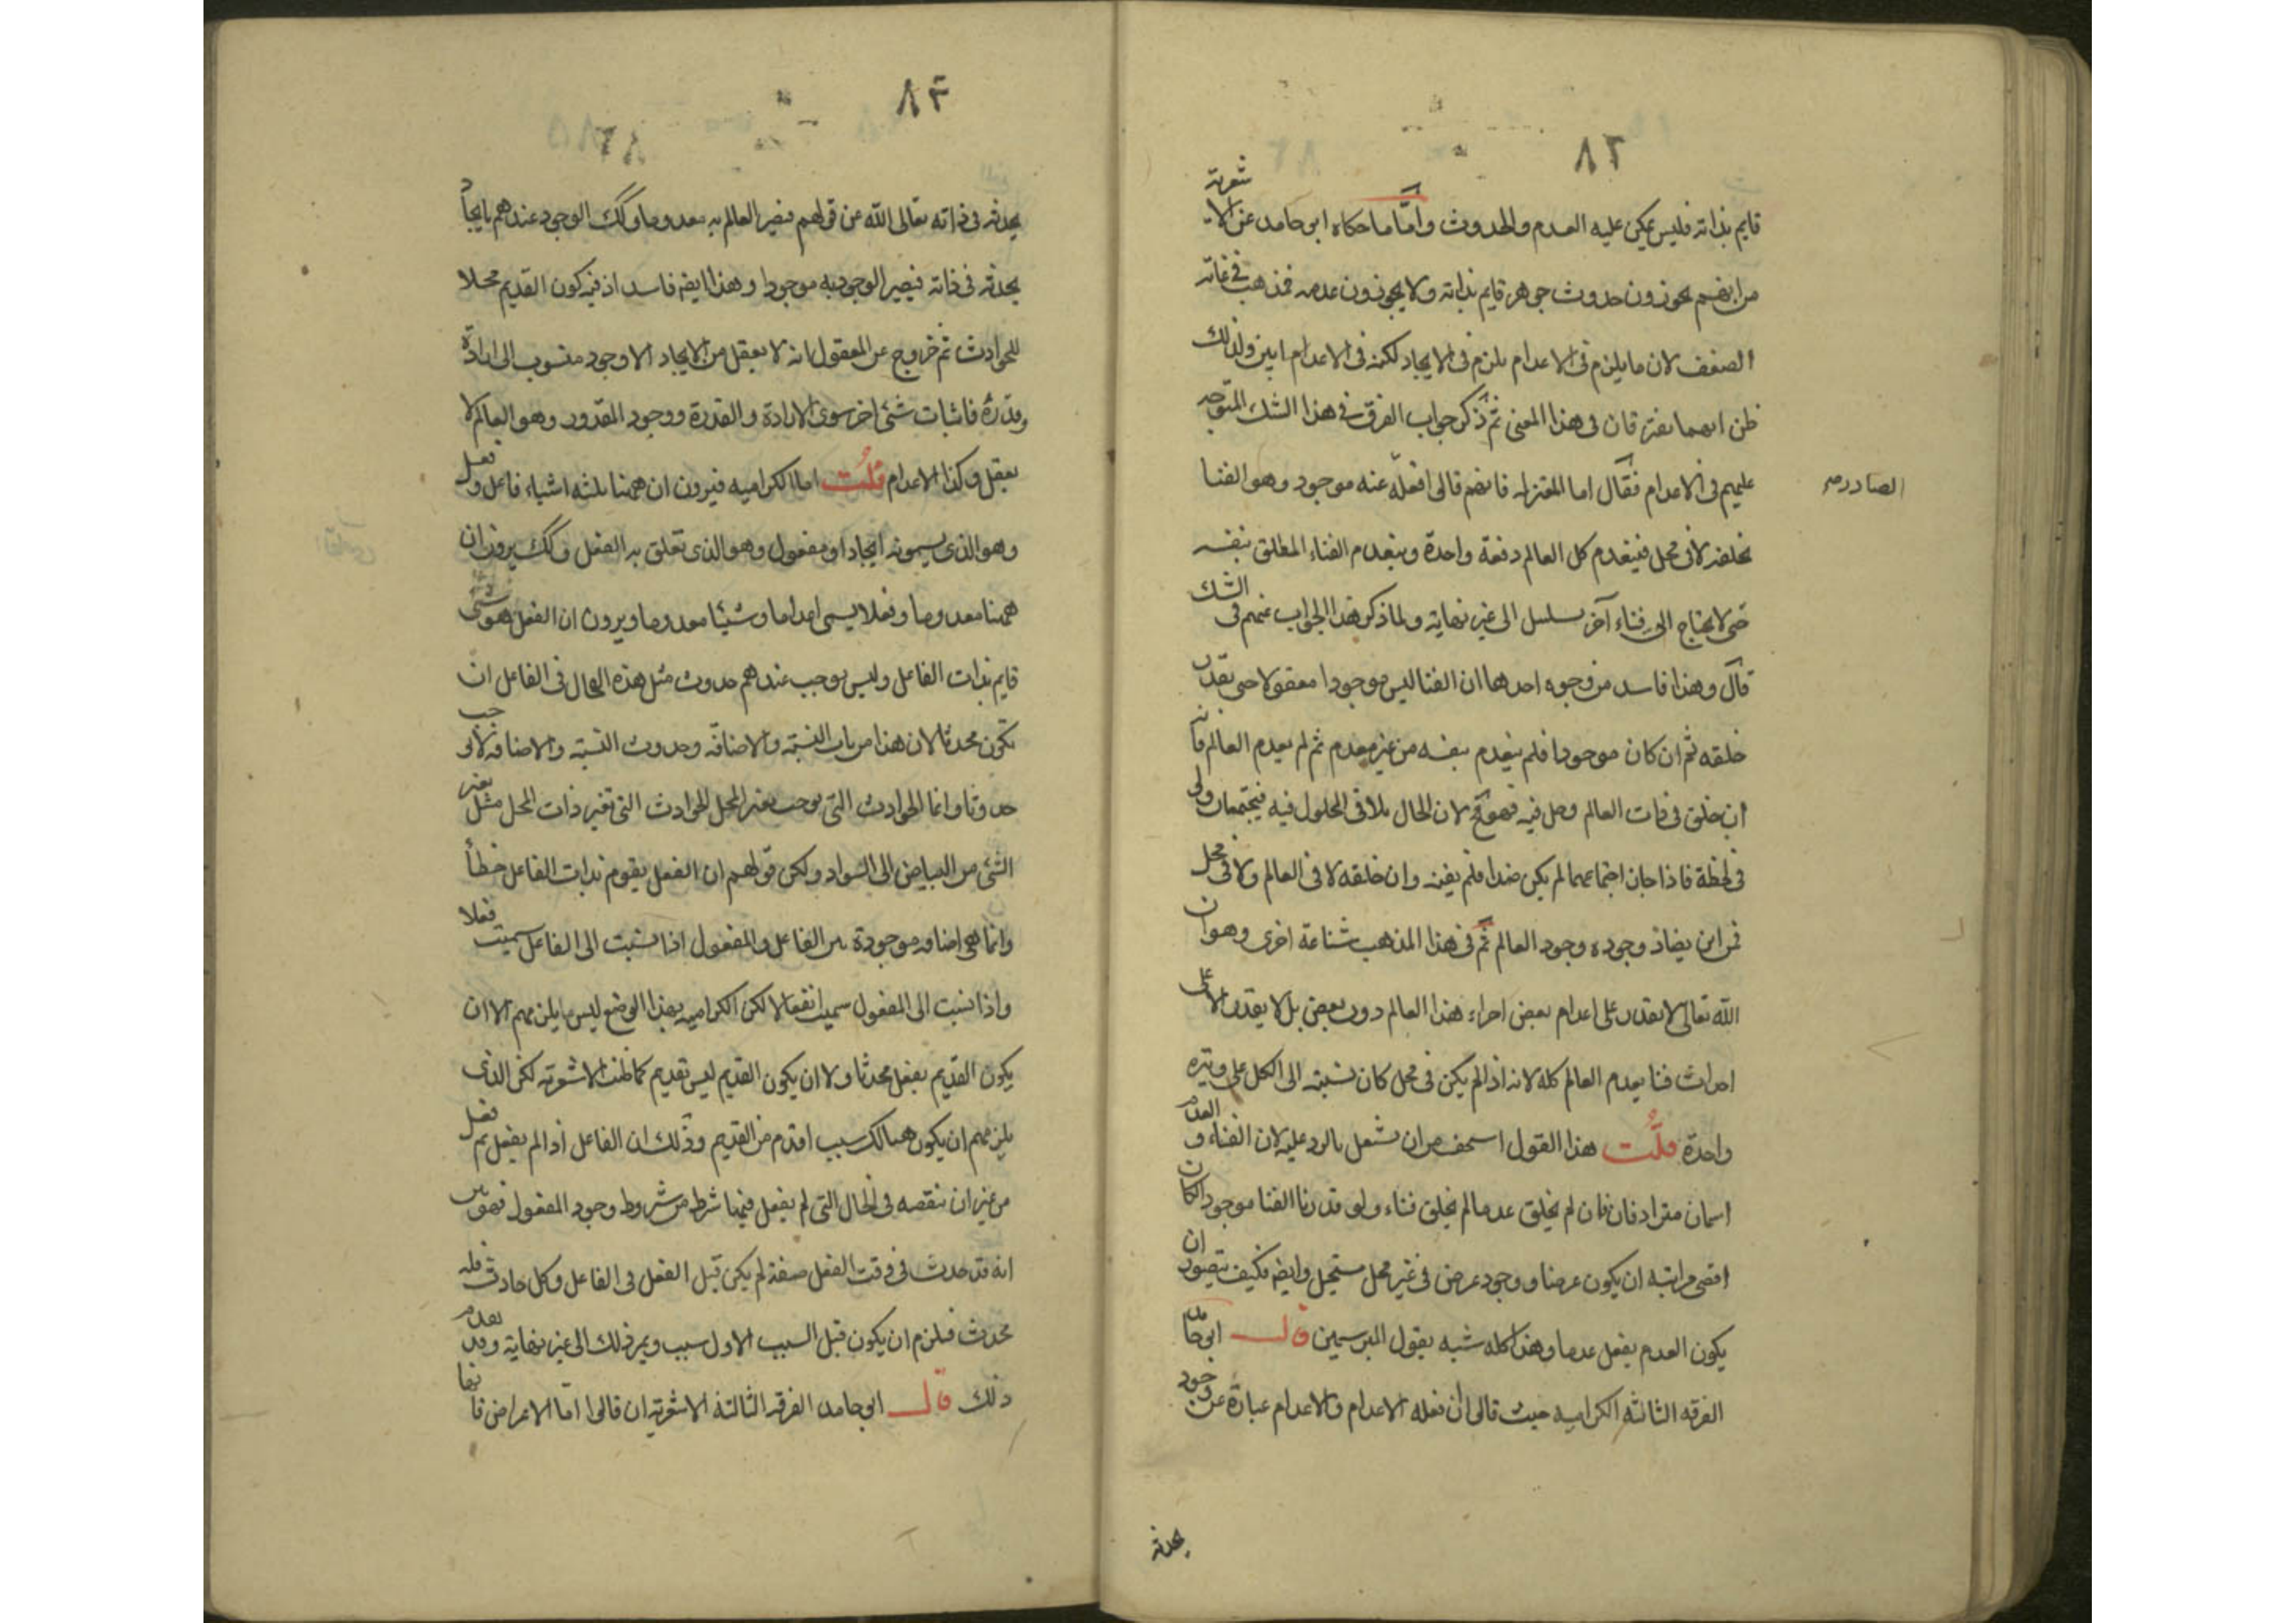 ٨٢
قايم بذاته فليس يمكن عليه العدم والحدوث واما ما حكاه ابو حامد عن الاشعرية
من انهم يجوزون حدوث جوهر قايم بذاته ولا يجوزون عدمه فمذهب في غاية
الضعف لان ما يلزم في الاعدام يلزم في الايجاد لكنه في الاعدام ابين ولذلك
ظن انهما يفترقان في هذا المعنى ثم ذكر جواب الفرق في هذا الشك المتوجه
عليهم في الاعدام فقال اما المعتزله فانهم قالوا فعله عنه موجود وهو الفنا
الصادر
يخلقه لا في محل فينعدم كل العالم دفعة واحدة وينعدم الفناء المطلق بنفسه
حتى لا يحتاج الى فناء آخر يسلسل الى غير نهاية ولما ذكر هذا الجواب عنهم في الشك
قال وهذا فاسد من وجوه احدها ان الفنا ليس موجودا معقولا حتى يقدر
خلقه ثم ان كان موجودا فلم ينعدم بنفسه من غير معدم ثم لم يعدم العالم فانه
ان خلق في ذات العالم وحل فيه فهو مح لان الحال يلاقى المحلول فيه فيجتمعان ولو
في لحظة فاذا جاز اجتماعهما لم يكن ضدا فلم يفنه وان خلقه لا في العالم ولا في محل
فمن اين يضاد وجوده وجود العالم ثم في هذا المذهب شناعة اخرى وهو ان
الله تعالى لا يقدر على اعدام بعض اجزاء هذا العالم دون بعض بل لا يقدر الا على
احداث فنا يعدم العالم كله لانه اذا لم يكن في محل كان نسبته الى الكل على وتيره
واحدة قلت هذا القول اسخف من ان نشتغل بالرد عليه لان الفناء والعدم
اسمان مترادفان فان لم يخلق عدما لم يخلق فناء ولو قدرنا الفنا موجودا لكان
اقصى مراتبه ان يكون عرضا ووجود عرض في غير محل مستحيل وايضا فكيف يتصور ان
يكون العدم يفعل عدما وهذا كله شبه بقول المبرسمين قال ابو حامد
الفرقه الثانيه الكراميه حيث قالوا ان فعله الاعدام والاعدام عبارة عن وجود
يحدثه
٨٣
يحدثه في ذاته تعالى الله عن قولهم فيصير العالم به معدوما وكك الوجود عندهم بايجاد
يحدثه في ذاته فيصير الوجود به موجودا وهذا ايضا فاسد اذ فيه كون القديم محلا
للحوادث ثم خروج عن المعقول لانه لا يعقل من الايجاد الا وجود منسوب الى ارادة
وقدرة فاثبات شئ اخر سوى الارادة والقدرة ووجود المقدور وهو العالم لا
يعقل وكذا الاعدام قلت اما الكراميه فيرون ان ههنا ثلثه اشياء فاعل وفعل
وهو الذي يسمونه ايجادا ومفعول وهو الذي تعلق به الفعل وكك يرون ان
ههنا معدوما وفعلا يسمى اعداما وشيئا معدوما ويرون ان الفعل هو شئ
قايم بذات الفاعل وليس يوجب عندهم حدوث مثل هذه الحال في الفاعل ان
تكون محدثا لان هذا من باب النسبة والاضافة وحدوث النسبة والاضافه لا يوجب
حدوثا وانما الحوادث التي توجب تغير المحل الحوادث التي تغير ذات المحل مثل تغير
الشئ من البياض الى السواد ولكن قولهم ان الفعل يقوم بذات الفاعل خطأ
وانما هي اضافه موجودة بين الفاعل والمفعول اذا نسبت الى الفاعل سميت فعلا
واذا نسبت الى المفعول سميت انفعالا لكن الكراميه بهذا الوضع ليس يلزمهم الا ان
يكون القديم يفعل محدثا ولا ان يكون القديم ليس بقديم كما ظنت الاشعرية لكن الذى
يلزمهم ان يكون هنالك سبب اقدم من القديم وذلك ان الفاعل اذا لم يفعل ثم فعل
من غير ان ينقصه في الحال التي لم يفعل فيها شرط من شروط وجود المفعول فهو بين
انه قد حدث في وقت الفعل صفة لم يكن قبل الفعل في الفاعل وكل حادث فله
محدث فيلزم ان يكون قبل السبب الاول سبب ويمر ذلك الى غير نهاية وقد تقدم
ذلك قال ابو حامد الفرقه الثالثة الاشعرية ان قالوا اما الاعراض فانها